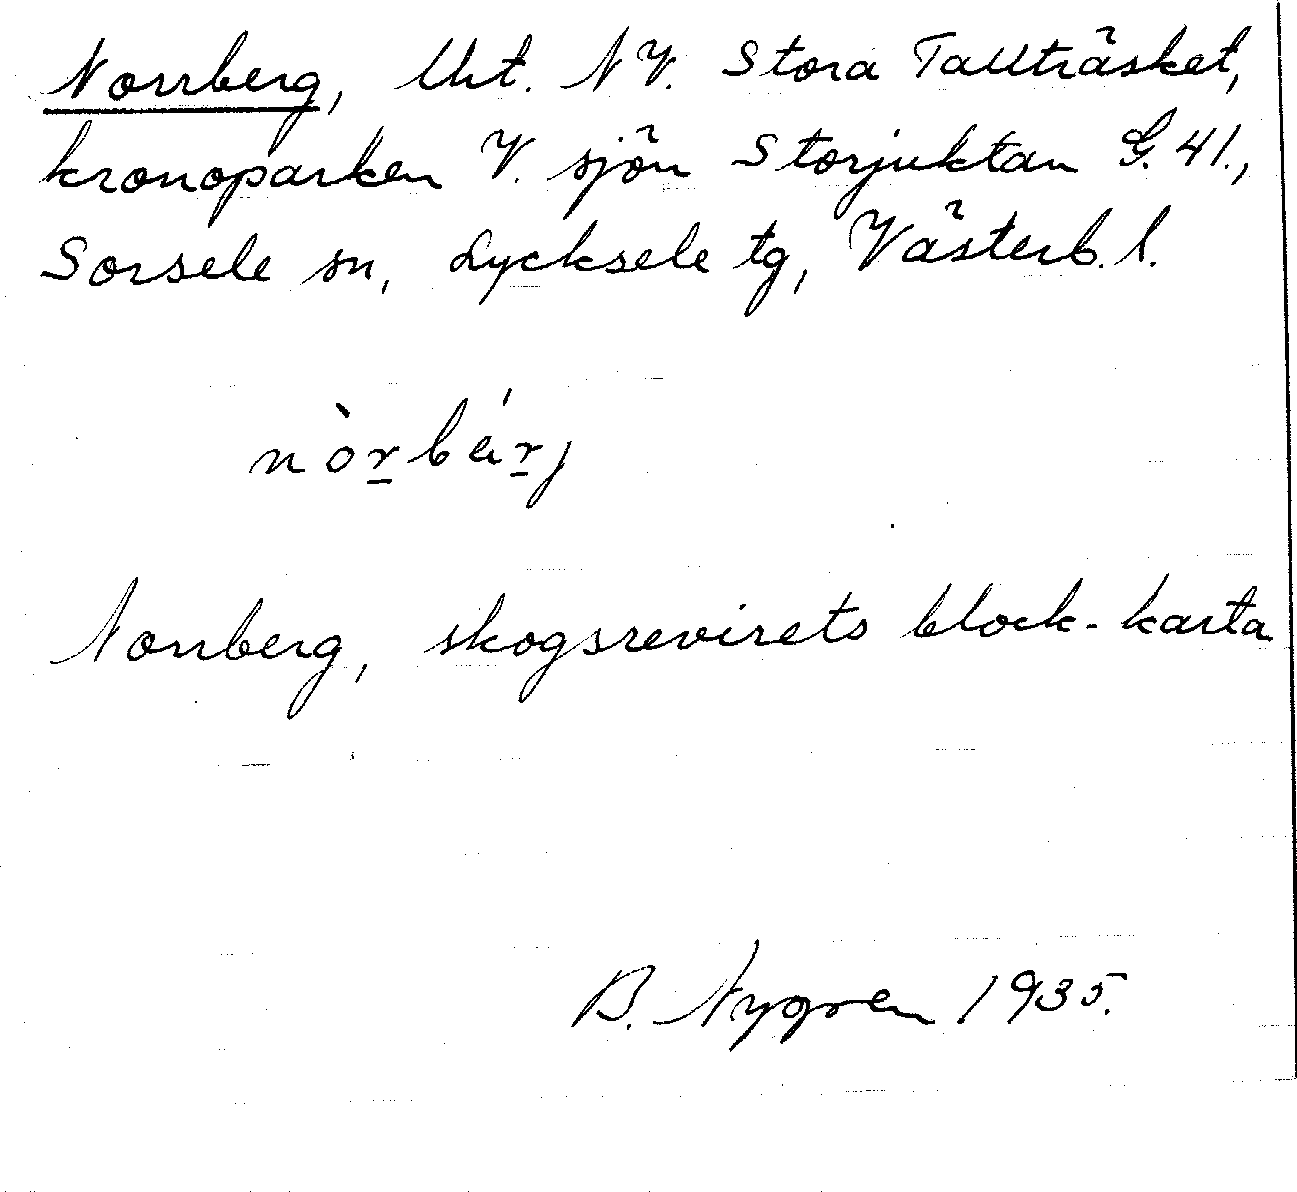 Norrberg, Utt. NV. Stora Tallträsket,
kronoparken V. sjön Storjuktan G. 41.,
Sorsele sn, Lycksele tg, Västerb. l.
nòṟbáṟj
Norrberg, skogsrevirets block-karta
B. Nygren 1935.